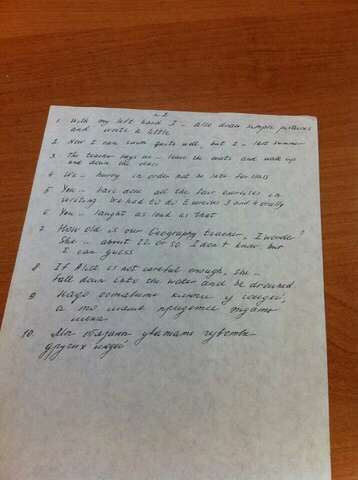 1. With my left hand I – also draw simple pictures
and write a little
2. Now I can swim quite well, but I – last summer
3. The teacher says we – leave the seats and walk up
and down the class
4. We – hurry in order not be late for class
5. You – have done all the four exercises in
writing We had to do Exercises 3 and 4 orally
6. You – laught as loud as that
7. How old is our Geography teacher, I wonder?
She – about 22 or so I don't know but
I can guess
8. If Alice is not careful enough, she –
fall down into the water and be drowned
9. Надо оставить ключи у соседей,
а то маме придется ждать
меня
10. Мы обязаны уважать чувства
других людей